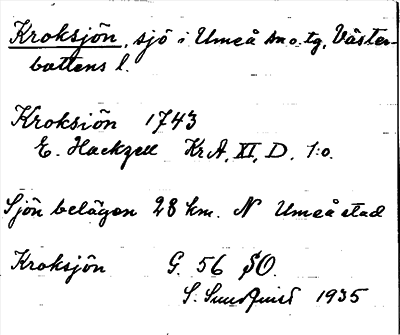 Kroksjön, sjö i Umeå sn o. tg, Väster-
bottens l.
Kroksiön 1743
E. Hackzell Kr A, XI, D. 1:o.
Sjön belägen 28 km. N Umeå stad
Kroksjön G. 56 SO.
S. Sundquist 1935